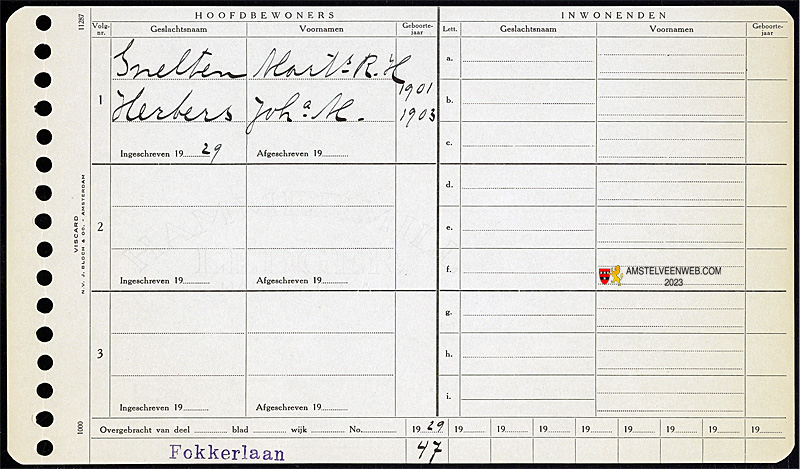 HOOFDBEWONERS
INWONENDEN
11287
Volg-nr. Geslachtsnaam Voornamen Geboorte-jaar
Lett. Geslachtsnaam Voornamen Geboorte-jaar
1
Snelten Marts R. H 1901
Herbers Joha M. 1903
Ingeschreven 19 29 Afgeschreven 19
2
Ingeschreven 19 Afgeschreven 19
3
Ingeschreven 19 Afgeschreven 19
a.
b.
c.
d.
e.
f.
g.
h.
i.
AMSTELVEENWEB.COM
2023
VISCARD
N.V. J. BLOCH & CO. - AMSTERDAM
1000
Overgebracht van deel blad wijk No. 19 29 19 19 19 19 19 19 19 19
Fokkerlaan 47